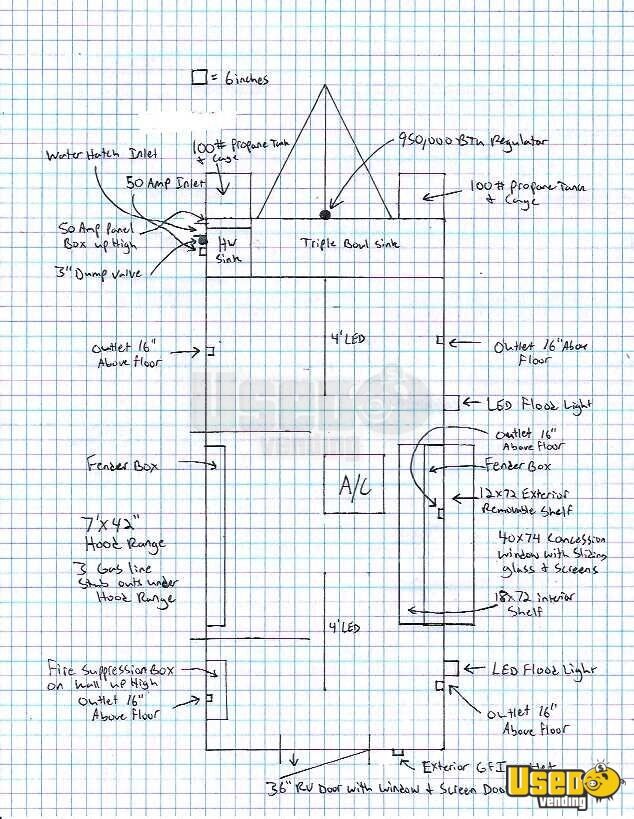 = 6 inches
Water Hatch Inlet
100# Propane Tank
& Cage
950,000 BTU Regulator
50 Amp Inlet
100# Propane Tank
& Cage
50 Amp Panel
Box up High
3" Dump Valve
HW
Sink
Triple Bowl Sink
Outlet 16"
Above Floor
4' LED
Outlet 16" Above
Floor
LED Flood Light
USED
vending
Outlet 16"
Above Floor
Fender Box
A/C
Fender Box
12x72 Exterior
Removable Shelf
7'x42"
Hood Range
3 Gas line
Stub outs under
Hood Range
40x74 Concession
window with Sliding
glass & Screens
18x72 interior
Shelf
4' LED
Fire Suppression Box
on wall up High
Outlet 16"
Above Floor
LED Flood Light
Outlet 16"
Above Floor
Exterior GFI
36" RV Door with window & Screen Door
USED
vending